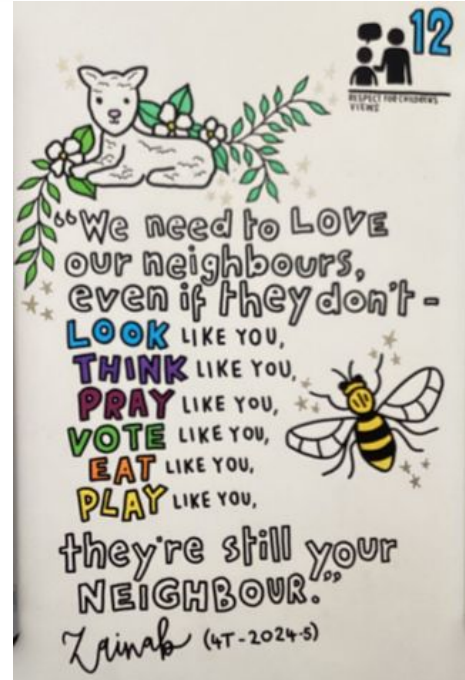 12
RESPECT FOR CHILDREN'S
VIEWS
"We need to LOVE
our neighbours,
even if they don't -
LOOK LIKE YOU,
THINK LIKE YOU,
PRAY LIKE YOU,
VOTE LIKE YOU,
EAT LIKE YOU,
PLAY LIKE YOU,
they're still your
NEIGHBOUR."
Zainab (4T-2024-5)